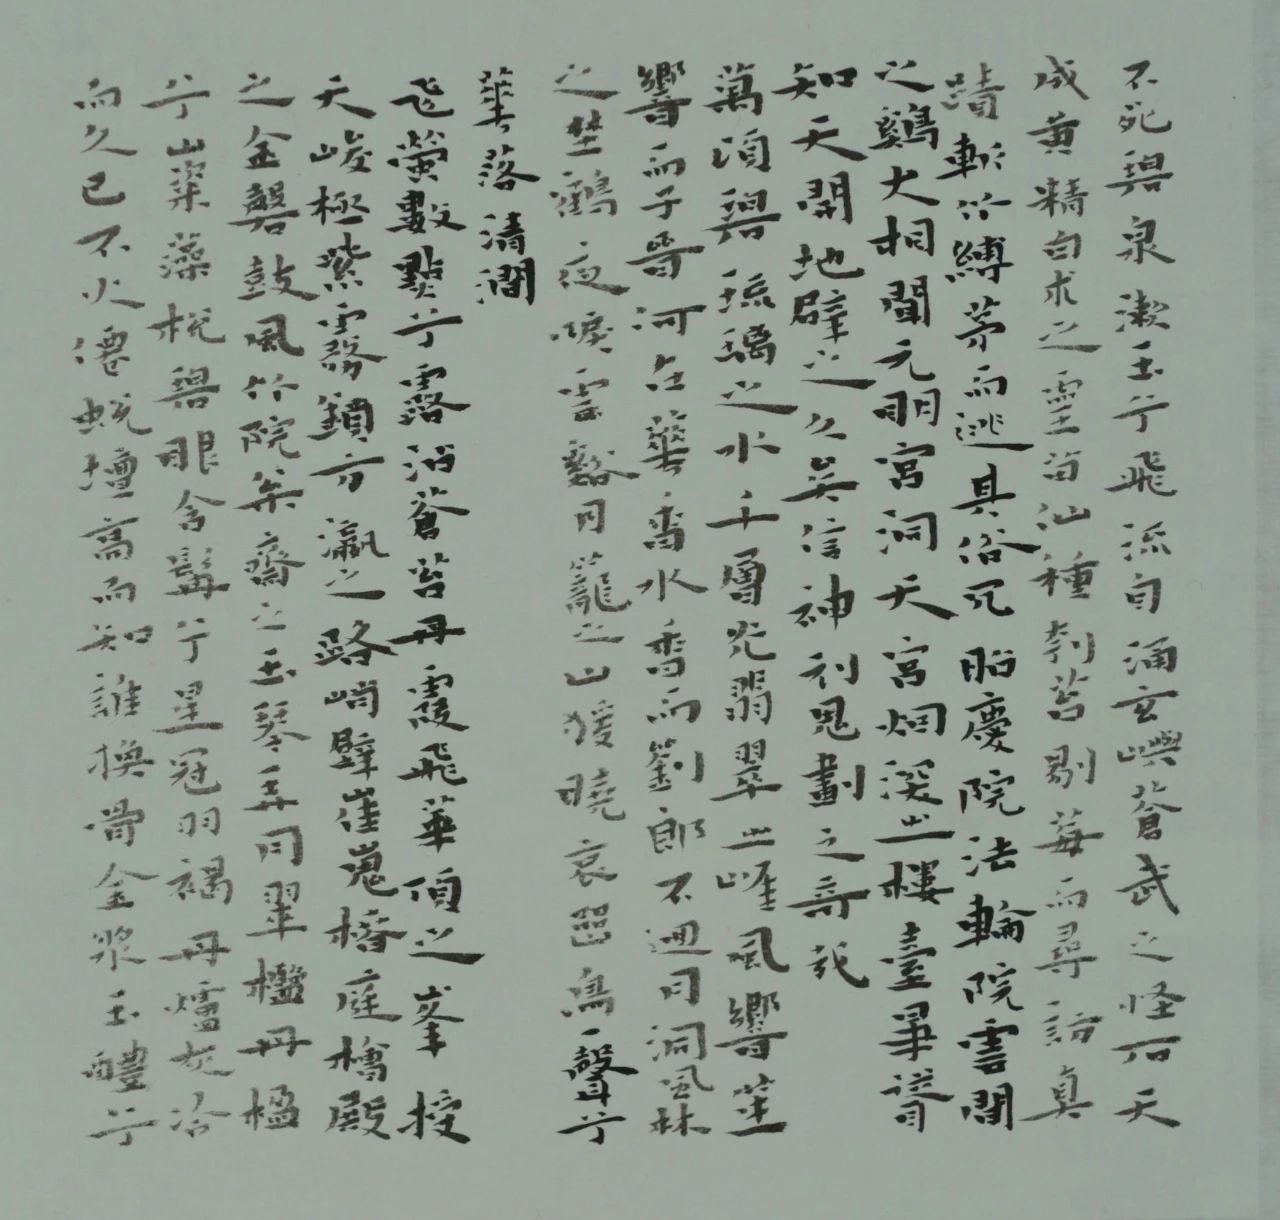 不死碧泉漱玉兮飛流自涌玄嶼蒼武之怪石天
成黃精自求之靈苗汕種刳苔剔莓而尋訪真
蹟斬竹縛茅而逃其俗冗昭慶院法輪院雲間
之鷄犬相聞元明宮洞天宮烟深之樓臺畢
知天開地闢之久矣信神利鬼劃之奇
萬頃碧琉璃之水千層光翡翠之峰風響笙
響而子晉河在華香水香而劉郎不迴月洞風林
之埜鶴夜唳雲谿月籠之山猨曉哀嵒鳥聲兮
華落清澗
飛螢數點兮露沾蒼苔丹霞飛華頂之峯授
天峻極紫霧鎖方瀛之路峭壁崔嵬榰庭檜殿
之金磬鼓風竹院茶齋之玉琴弄月翠檻丹楹
兮山楶藻梲碧眼含髯兮星冠羽褐丹爐灰冷
而久已不火僊蛻壇高而知誰換骨金漿玉醴兮